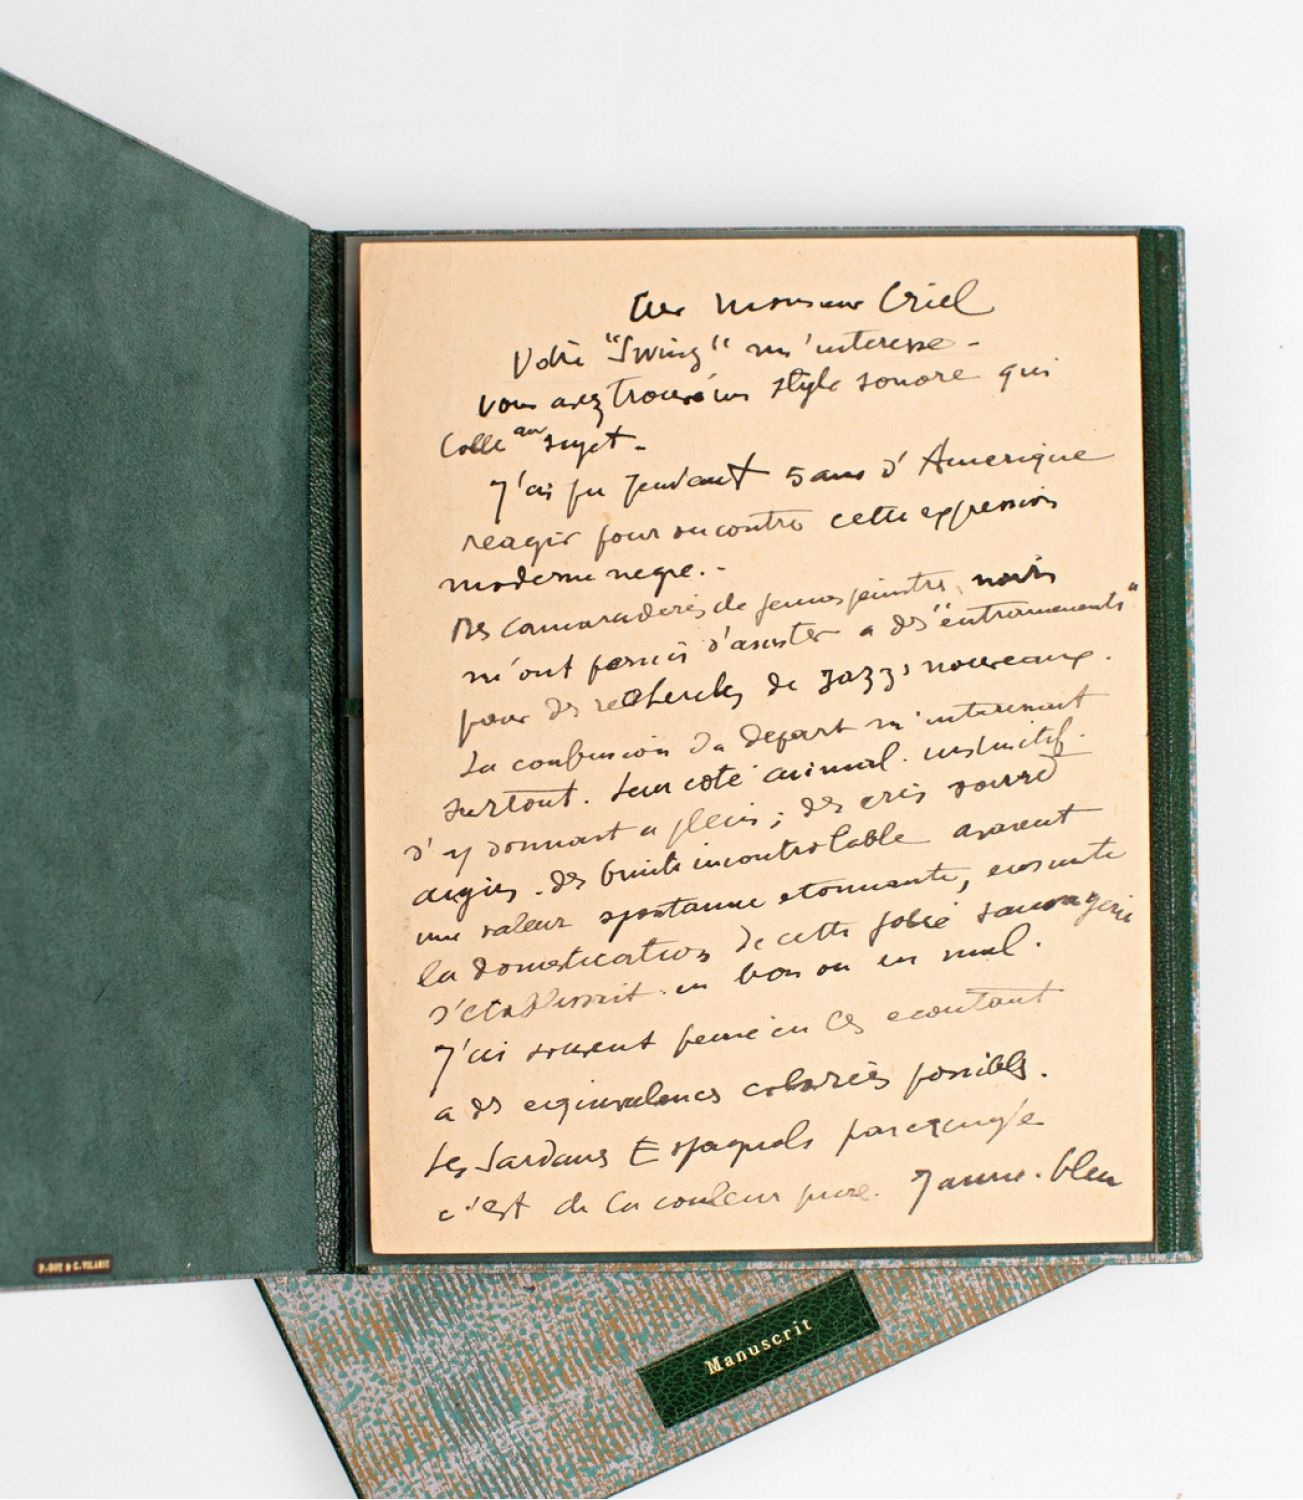 Cher Monsieur Criel
Votre "Swing" m'interesse -
vous avez trouvé un style sonore qui
colle au sujet -
J'ai pu pendant 5 ans d'Amerique
reagir pour ou contre cette expression
moderne negre. -
Des camaraderies de jeunes peintres noirs
m'ont permis d'assister a des "entrainements"
pour des recherches de Jazz, nouveaux.
La confusion du depart m'interessait
surtout. Leur coté animal. instinctif.
s'y donnait a plein; des cris sourd
aigies. des bruits incontrolable avaient
une valeur spontanne etonnante, ensuite
la domestication de cette sauvagerie
s'etablissait. en bon ou en mal.
J'ai souvent pensé en les ecoutant
a des equivalences colorées possibles.
Les Sardans Espagnols par exemple
c'est de la couleur pure. Jaune. bleu
D. GOY & C. VILAINE
Manuscrit